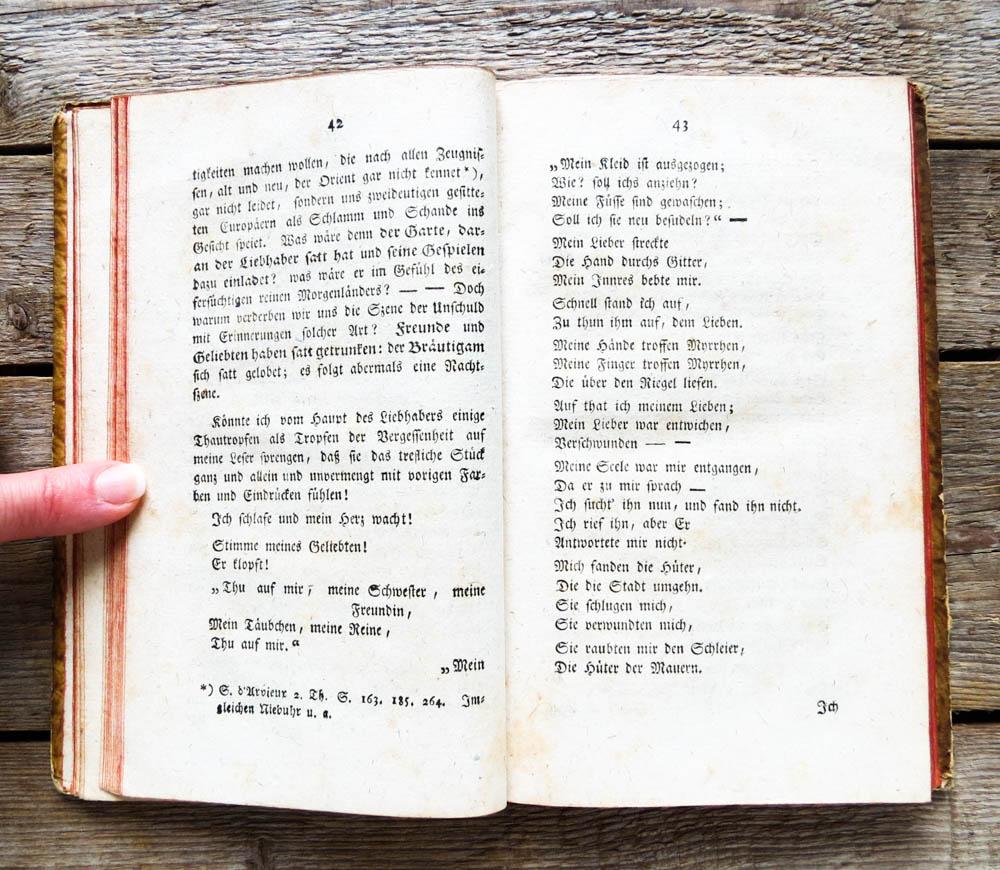 42
tigkeiten machen wollen, die nach allen Zeugnis-
sen, alt und neu, der Orient gar nicht kennet*),
gar nicht leidet, sondern uns zweideutigen gesitte-
ten Europäern als Schlamm und Schande ins
Gesicht speiet. Was wäre denn der Garte, dar-
an der Liebhaber satt hat und seine Gespielen
dazu einladet? was wäre er im Gefühl des ei-
fersüchtigen reinen Morgenländers? — — Doch
warum verderben wir uns die Szene der Unschuld
mit Erinnerungen solcher Art? Freunde und
Geliebten haben satt getrunken: der Bräutigam
sich satt gelobet; es folgt abermals eine Nacht-
szene.
Könnte ich vom Haupt des Liebhabers einige
Thautropfen als Tropfen der Vergessenheit auf
meine Leser sprengen, daß sie das trefliche Stück
ganz und allein und unvermengt mit vorigen Far-
ben und Eindrücken fühlen!
Ich schlafe und mein Herz wacht!
Stimme meines Geliebten!
Er klopft!
„Thu auf mir, meine Schwester, meine
Freundin,
Mein Täubchen, meine Reine,
Thu auf mir.“
„Mein
*) S. d'Arvieux 2. Th. S. 163. 185. 264. Im-
gleichen Niebuhr u. a.
43
„Mein Kleid ist ausgezogen;
Wie? soll ichs anziehn?
Meine Füsse sind gewaschen;
Soll ich sie neu besudeln?“ —
Mein Lieber streckte
Die Hand durchs Gitter,
Mein Innres bebte mir.
Schnell stand ich auf,
Zu thun ihm auf, dem Lieben.
Meine Hände troffen Myrrhen,
Meine Finger troffen Myrrhen,
Die über den Riegel liefen.
Auf that ich meinem Lieben;
Mein Lieber war entwichen,
Verschwunden — —
Meine Seele war mir entgangen,
Da er zu mir sprach —
Ich sucht' ihn nun, und fand ihn nicht.
Ich rief ihn, aber Er
Antwortete mir nicht.
Mich fanden die Hüter,
Die die Stadt umgehn.
Sie schlugen mich,
Sie verwundten mich,
Sie raubten mir den Schleier,
Die Hüter der Mauern.
Ich